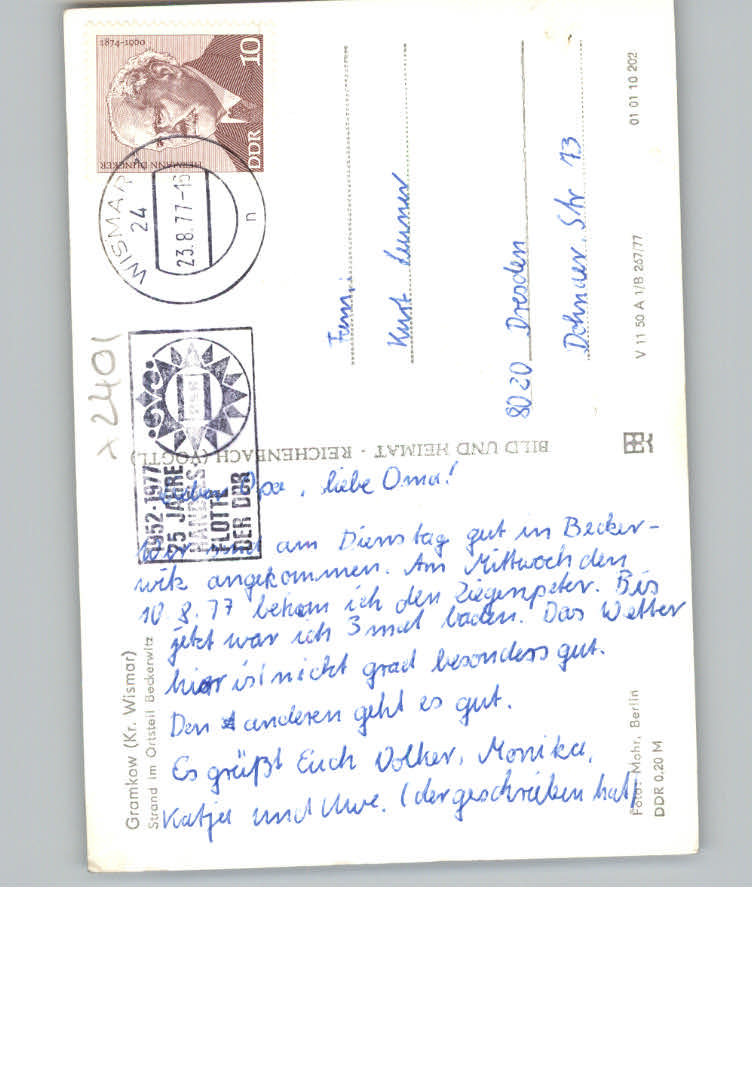 Lieber Opa, liebe Oma!
Wir sind am Dienstag gut in Becker-
witz angekommen. Am Mittwoch den
10.8.77 bekam ich den Ziegenpeter. Bis
jetzt war ich 3 mal baden. Das Wetter
hier ist nicht grad besonders gut.
Den anderen geht es gut.
Es grüßt Euch Volker, Monika,
Katja und Uwe. (der geschrieben hat)
Fam.
Kurt
8020 Dresden
Dohnaer. Str 73
1874-1960
10
DDR
HERMANN DUNCKER
WISMAR 1
24
23.8.77-16
n
1952·1977
25 JAHRE
HANDELS
FLOTTE
DER DDR
x 2401
BILD UND HEIMAT · REICHENBACH (VOGTL)
Gramkow (Kr. Wismar)
Strand im Ortsteil Beckerwitz
Foto: Mohr, Berlin
DDR 0,20 M
V 11 50 A 1/B 267/77
01 01 10 202